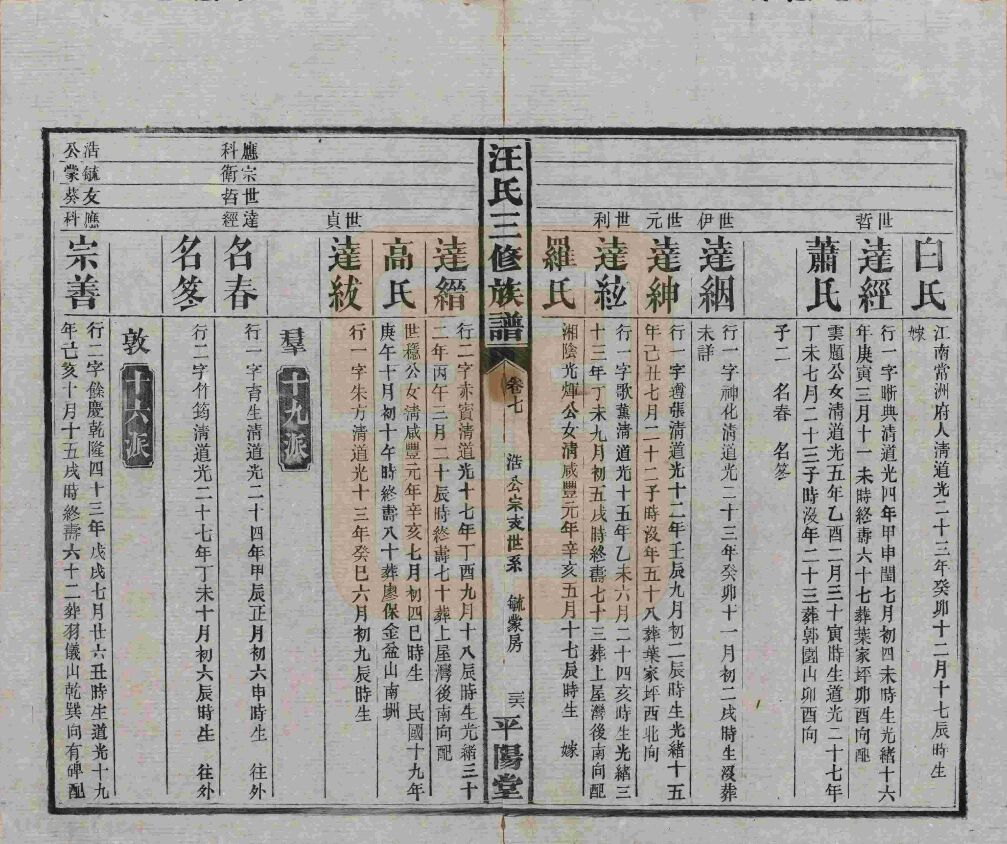 白氏
江南常洲府人清道光二十三年癸卯十二月十七辰時生
嫁
世哲
達經
行一字晰典清道光四年甲申閏七月初四未時生光緒十六
年庚寅三月十一未時終壽六十七葬葉家坪卯酉向配
蕭氏
雲題公女清道光五年乙酉二月三十寅時生道光二十七年
丁未七月二十三子時沒年二十三葬郭園山卯酉向
子二 名春 名筊
世伊
達絪
行一字神化清道光二十三年癸卯十一月初二戌時生沒葬
未詳
世元
達紳
行一字遵張清道光十二年壬辰九月初二辰時生光緒十五
年己丑七月二十二子時沒年五十八葬葉家坪酉北向
世利
達紘
行一字歌薰清道光十五年乙未六月二十四亥時生光緒三
十三年丁未九月初五戌時終壽七十三葬上屋灣後南向配
羅氏
湘陰光煇公女清咸豐元年辛亥五月十七辰時生 嫁
汪氏三修族譜
卷七
浩公宗支世系 毓蒙房
平陽堂
達縉
行二字赤賓清道光十七年丁酉九月十八辰時生光緒三十
二年丙午三月二十辰時終壽七十葬上屋灣後南向配
高氏
世穩公女清咸豐元年辛亥七月初四巳時生 民國十九年
庚午十月初十午時終壽八十葬廖保金盆山南圳
世貞
達紱
行一字朱方清道光十三年癸巳六月初九辰時生
羣 十九派
應科
宗衛
世哲
達經
名春
行一字育生清道光二十四年甲辰正月初六申時生 往外
名筊
行二字竹筠清道光二十七年丁未十月初六辰時生 往外
敦 十六派
浩公
毓蒙
友葵
應科
宗善
行二字餘慶乾隆四十三年戊戌七月廿六丑時生道光十九
年亡亥十月十五戌時終壽六十二葬羽儀山乾巽向有碑配